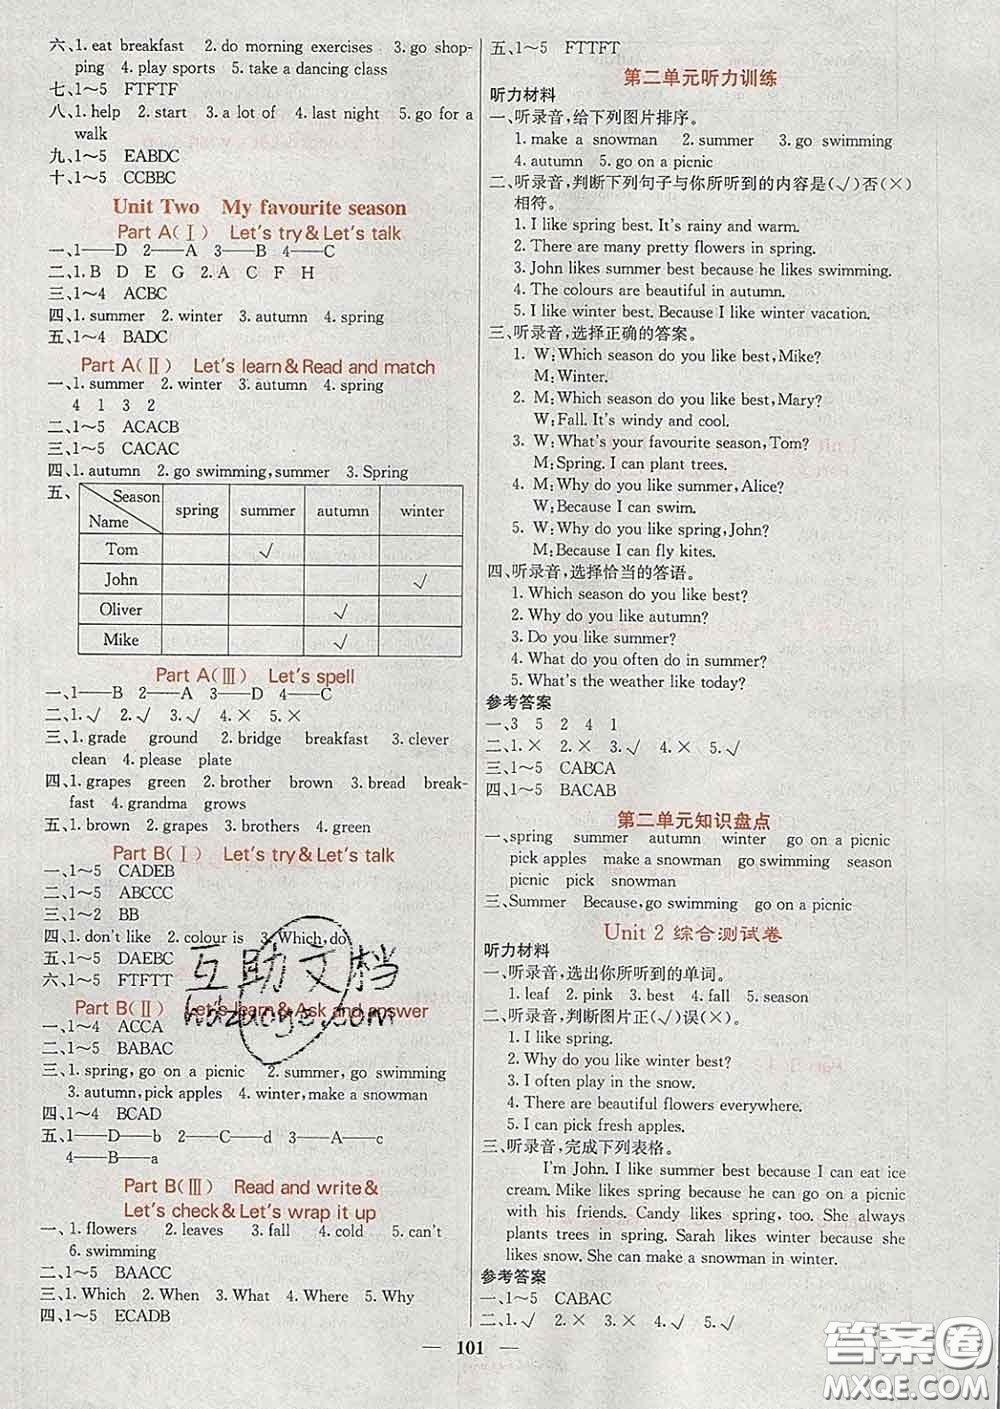 六、1. eat breakfast 2. do morning exercises 3. go shop-
ping 4. play sports 5. take a dancing class
七、1～5 FTFTF
八、1. help 2. start 3. a lot of 4. last night 5. go for a
walk
九、1～5 EABDC
十、1～5 CCBBC
Unit Two My favourite season
Part A(Ⅰ) Let's try & Let's talk
一、1——D 2——A 3——B 4——C
二、1. B D E G 2. A C F H
三、1～4 ACBC
四、1. summer 2. winter 3. autumn 4. spring
五、1～4 BADC
Part A(Ⅱ) Let's learn & Read and match
一、1. summer 2. winter 3. autumn 4. spring
4 1 3 2
二、1～5 ACACB
三、1～5 CACAC
四、1. autumn 2. go swimming, summer 3. Spring
五、
Season
Name
spring summer autumn winter
Tom √
John √
Oliver √
Mike √
Part A(Ⅲ) Let's spell
一、1——B 2——A 3——D 4——C
二、1. √ 2. √ 3. √ 4. × 5. ×
三、1. grade ground 2. bridge breakfast 3. clever
clean 4. please plate
四、1. grapes green 2. brother brown 3. bread break-
fast 4. grandma grows
五、1. brown 2. grapes 3. brothers 4. green
Part B(Ⅰ) Let's try & Let's talk
一、1～5 CADEB
二、1～5 ABCCC
三、1～2 BB
四、1. don't like 2. colour is 3. Which, do
五、1～5 DAEBC
六、1～5 FTFTT
Part B(Ⅱ) Let's learn & Ask and answer
一、1～4 ACCA
二、1～5 BABAC
三、1. spring, go on a picnic 2. summer, go swimming
3. autumn, pick apples 4. winter, make a snowman
四、1～4 BCAD
五、1——D——b 2——C——d 3——A——c
4——B——a
Part B(Ⅲ) Read and write &
Let's check & Let's wrap it up
一、1. flowers 2. leaves 3. fall 4. cold 5. can't
6. swimming
二、1～5 BAACC
三、1. Which 2. When 3. What 4. Where 5. Why
四、1～5 ECADB
五、1～5 FTTFT
第二单元听力训练
听力材料
一、听录音,给下列图片排序。
1. make a snowman 2. summer 3. go swimming
4. autumn 5. go on a picnic
二、听录音,判断下列句子与你所听到的内容是(√)否(×)
相符。
1. I like spring best. It's rainy and warm.
2. There are many pretty flowers in spring.
3. John likes summer best because he likes swimming.
4. The colours are beautiful in autumn.
5. I like winter best. Because I like winter vacation.
三、听录音,选择正确的答案。
1. W: Which season do you like best, Mike?
M: Winter.
2. M: Which season do you like best, Mary?
W: Fall. It's windy and cool.
3. W: What's your favourite season, Tom?
M: Spring. I can plant trees.
4. M: Why do you like summer, Alice?
W: Because I can swim.
5. W: Why do you like spring, John?
M: Because I can fly kites.
四、听录音,选择恰当的答语。
1. Which season do you like best?
2. Why do you like autumn?
3. Do you like summer?
4. What do you often do in summer?
5. What's the weather like today?
参考答案
一、3 5 2 4 1
二、1. × 2. × 3. √ 4. × 5. √
三、1～5 CABCA
四、1～5 BACAB
第二单元知识盘点
一、spring summer autumn winter go on a picnic
pick apples make a snowman go swimming season
picnic pick snowman
三、Summer Because, go swimming go on a picnic
Unit 2 综合测试卷
听力材料
一、听录音,选出你所听到的单词。
1. leaf 2. pink 3. best 4. fall 5. season
二、听录音,判断图片正(√)误(×)。
1. I like spring.
2. Why do you like winter best?
3. I often play in the snow.
4. There are beautiful flowers everywhere.
5. I can pick fresh apples.
三、听录音,完成下列表格。
I'm John. I like summer best because I can eat ice
cream. Mike likes spring because he can go on a picnic
with his friends. Candy likes spring, too. She always
plants trees in spring. Sarah likes winter because she
likes snow. She can make a snowman in winter.
参考答案
一、1～5 CABAC
二、1. √ 2. × 3. × 4. √ 5. √
— 101 —
互助文档
hdzuoye.com
答案圈
MXQE.COM